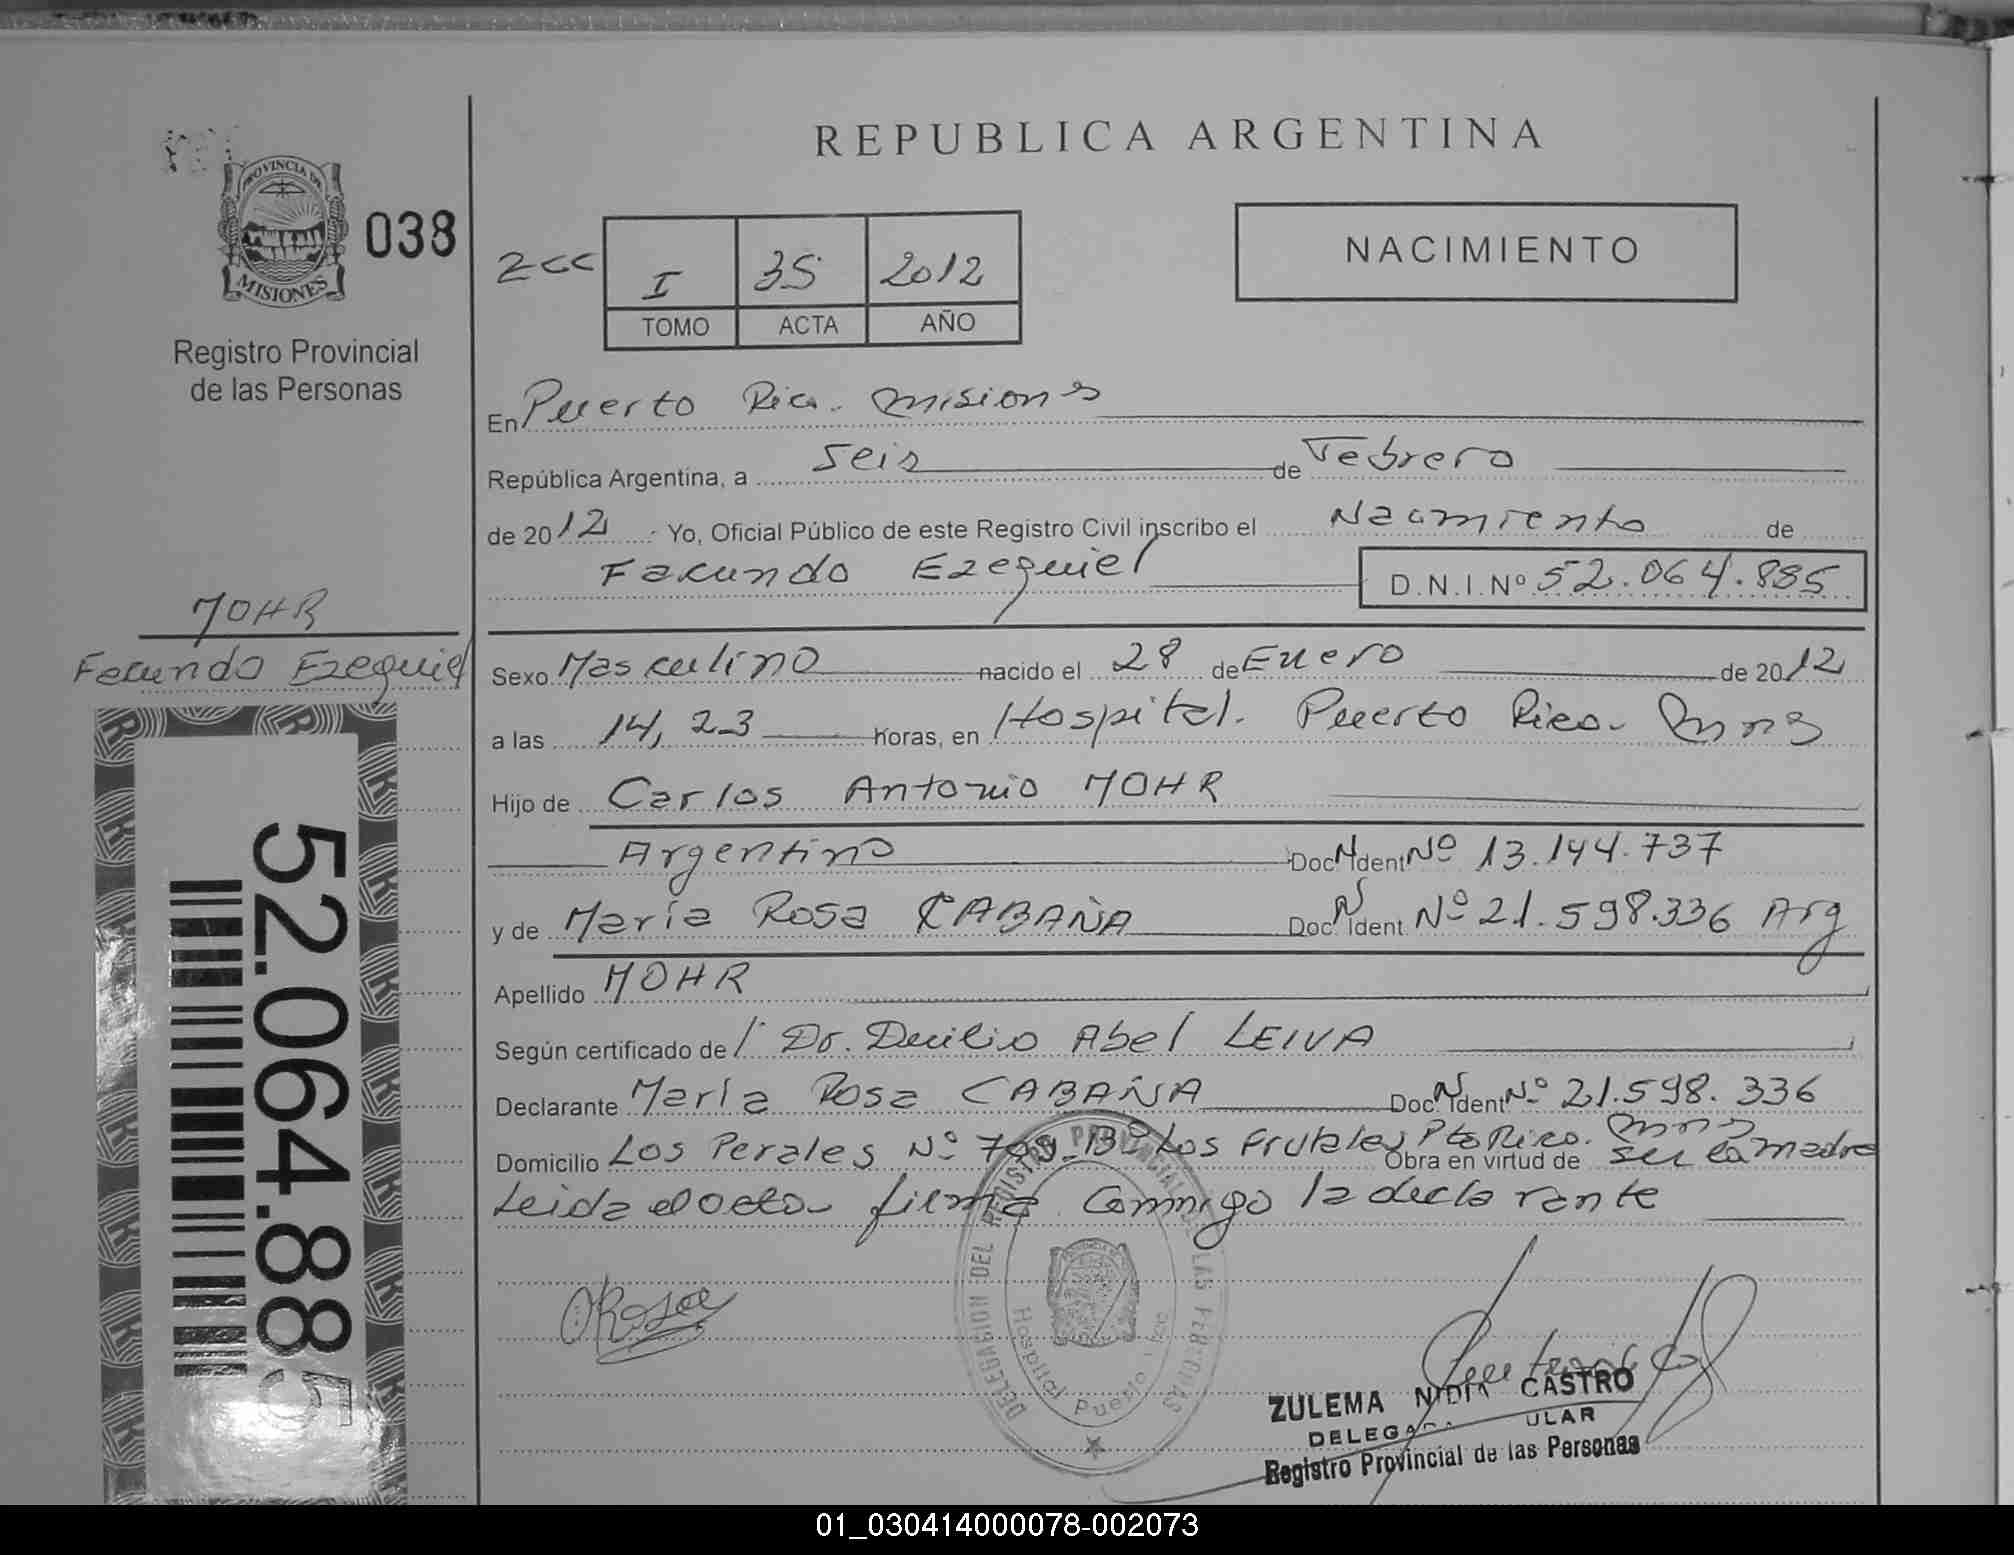 REPUBLICA ARGENTINA
PROVINCIA DE
MISIONES
038
Registro Provincial
de las Personas
2CC
I 35 2012
TOMO ACTA AÑO
NACIMIENTO
En Puerto Rico. Misiones
República Argentina, a seis de Febrero
de 2012 .- Yo, Oficial Público de este Registro Civil inscribo el Nacimiento de
Facundo Ezequiel D.N.I.Nº 52.064.885
MOHR
Facundo Ezequiel
52.064.885
Sexo Masculino nacido el 28 de Enero de 2012
a las 14,23 horas, en Hospital. Puerto Rico. Mnes
Hijo de Carlos Antonio MOHR
Argentino Doc N Ident Nº 13.144.737
y de María Rosa CABAÑA Doc N Ident Nº 21.598.336 Arg
Apellido MOHR
Según certificado de l Dr. Duilio Abel LEIVA
Declarante María Rosa CABAÑA Doc N Ident Nº 21.598.336
Domicilio Los Perales Nº Bº Los Frutales Pto Rico. Mnes
Obra en virtud de ser la madre
Leida el acta firma conmigo la declarante
DELEGACION DEL REGISTRO PROVINCIAL DE LAS PERSONAS
Hospital Puerto Rico
ZULEMA NIDIA CASTRO
Registro Provincial de las Personas
01_030414000078-002073